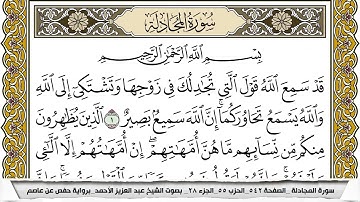 سُورَةُ المُجَادلَةِ
بِسْمِ اللَّهِ الرَّحْمَٰنِ الرَّحِيمِ
قَدْ سَمِعَ اللَّهُ قَوْلَ الَّتِي تُجَادِلُكَ فِي زَوْجِهَا وَتَشْتَكِي إِلَى اللَّهِ
وَاللَّهُ يَسْمَعُ تَحَاوُرَكُمَا إِنَّ اللَّهَ سَمِيعٌ بَصِيرٌ ١ الَّذِينَ يُظَاهِرُونَ
مِنكُم مِّن نِّسَائِهِم مَّا هُنَّ أُمَّهَاتِهِمْ إِنْ أُمَّهَاتُهُمْ إِلَّا اللَّائِي
سورة المجادلة_ الصفحة ٥٤٢_ الحزب ٥٥_ الجزء ٢٨_ بصوت الشيخ عبد العزيز الأحمد_ برواية حفص عن عاصم